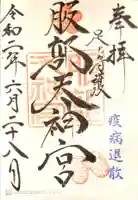 奉拝
疫病退散
服部天神宮
令和二年六月二十八日